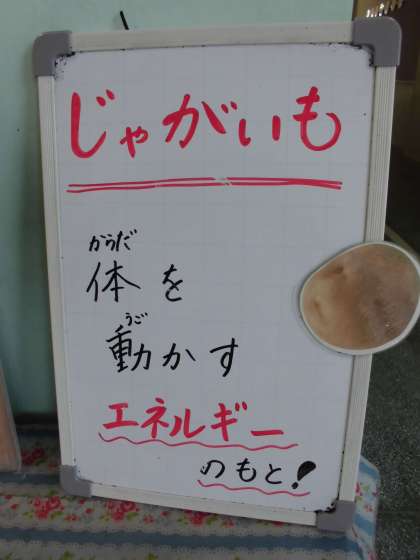 じゃがいも
からだ
体を
うご
動かす
エネルギー
のもと!